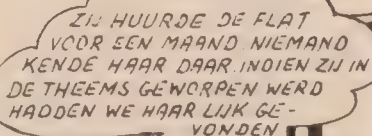 ZIJ HUURDE DE FLAT
VOOR EEN MAAND. NIEMAND
KENDE HAAR DAAR. INDIEN ZIJ IN
DE THEEMS GEWORPEN WERD
HADDEN WE HAAR LIJK GE-
VONDEN